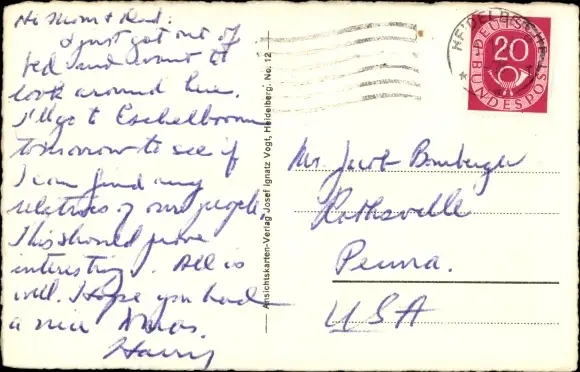 Hi Mom & Dad:
I just got out of
bed and want to
look around here.
I'll go to Eschelbronn
tomorrow to see if
I can find any
relatives of our people
This should prove
interesting. All is
well. Hope you had
a nice Xmas.
Harry
Ansichtskarten-Verlag Josef Ignatz Vogt, Heidelberg. No. 12
HEIDELBERG
DEUTSCHE
BUNDESPOST
20
Mr. Jacob Bomberger
Rothsville
Penna.
USA